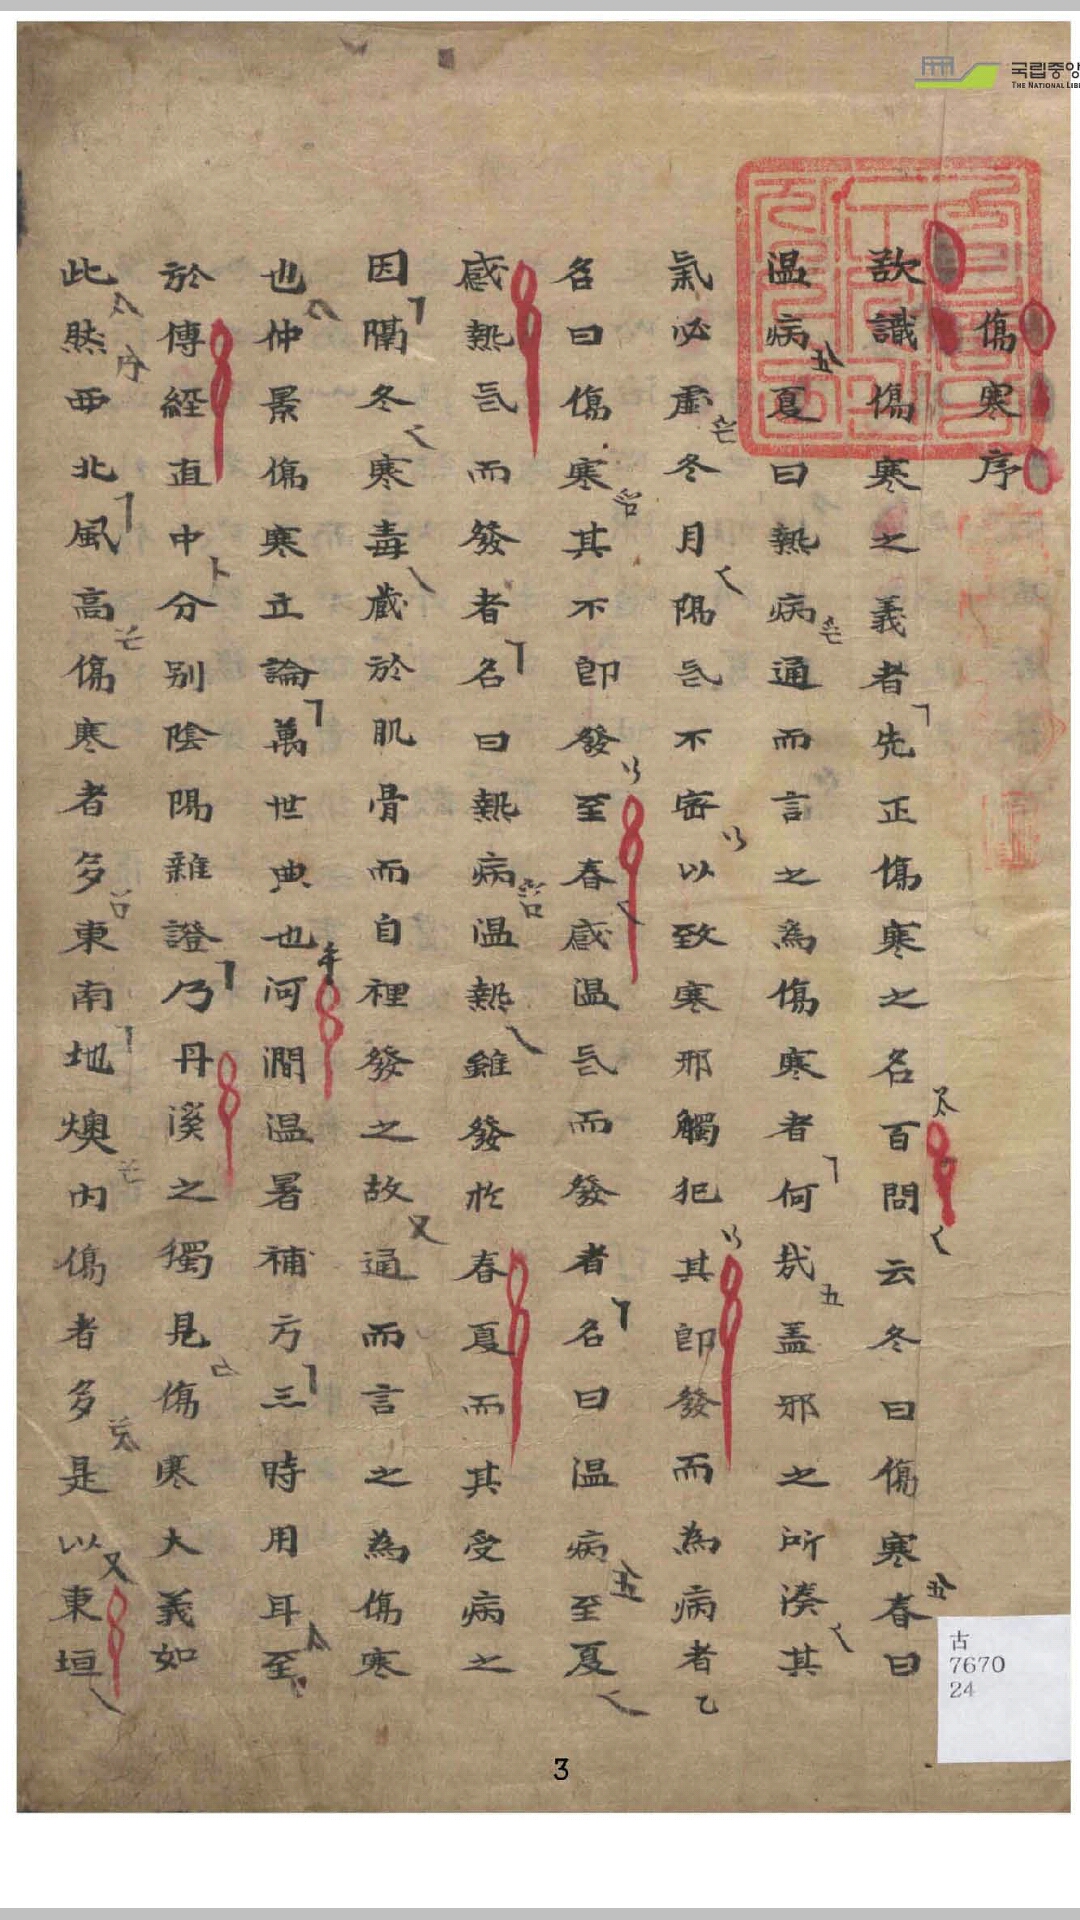 傷寒序
欲識傷寒之義者先正傷寒之名百問云冬曰傷寒春曰
温病夏曰熱病通而言之為傷寒者何㢤盖邪之所湊其
氣必虛冬月陽气不密以致寒邪觸犯其即發而為病者
名曰傷寒其不即發至春感温气而發者名曰温病至夏
感熱气而發者名曰熱病温熱雖發於春夏而其受病之
因隔冬寒毒藏於肌骨而自裡發之故通而言之為傷寒
也仲景傷寒立論萬世典也河澗温暑補方三時用耳至
於傳經直中分別陰陽雜證乃丹溪之獨見傷寒大義如
此然西北風高傷寒者多東南地燠內傷者多是以東垣
국립중앙
THE NATIONAL LIB
古
7670
24
3